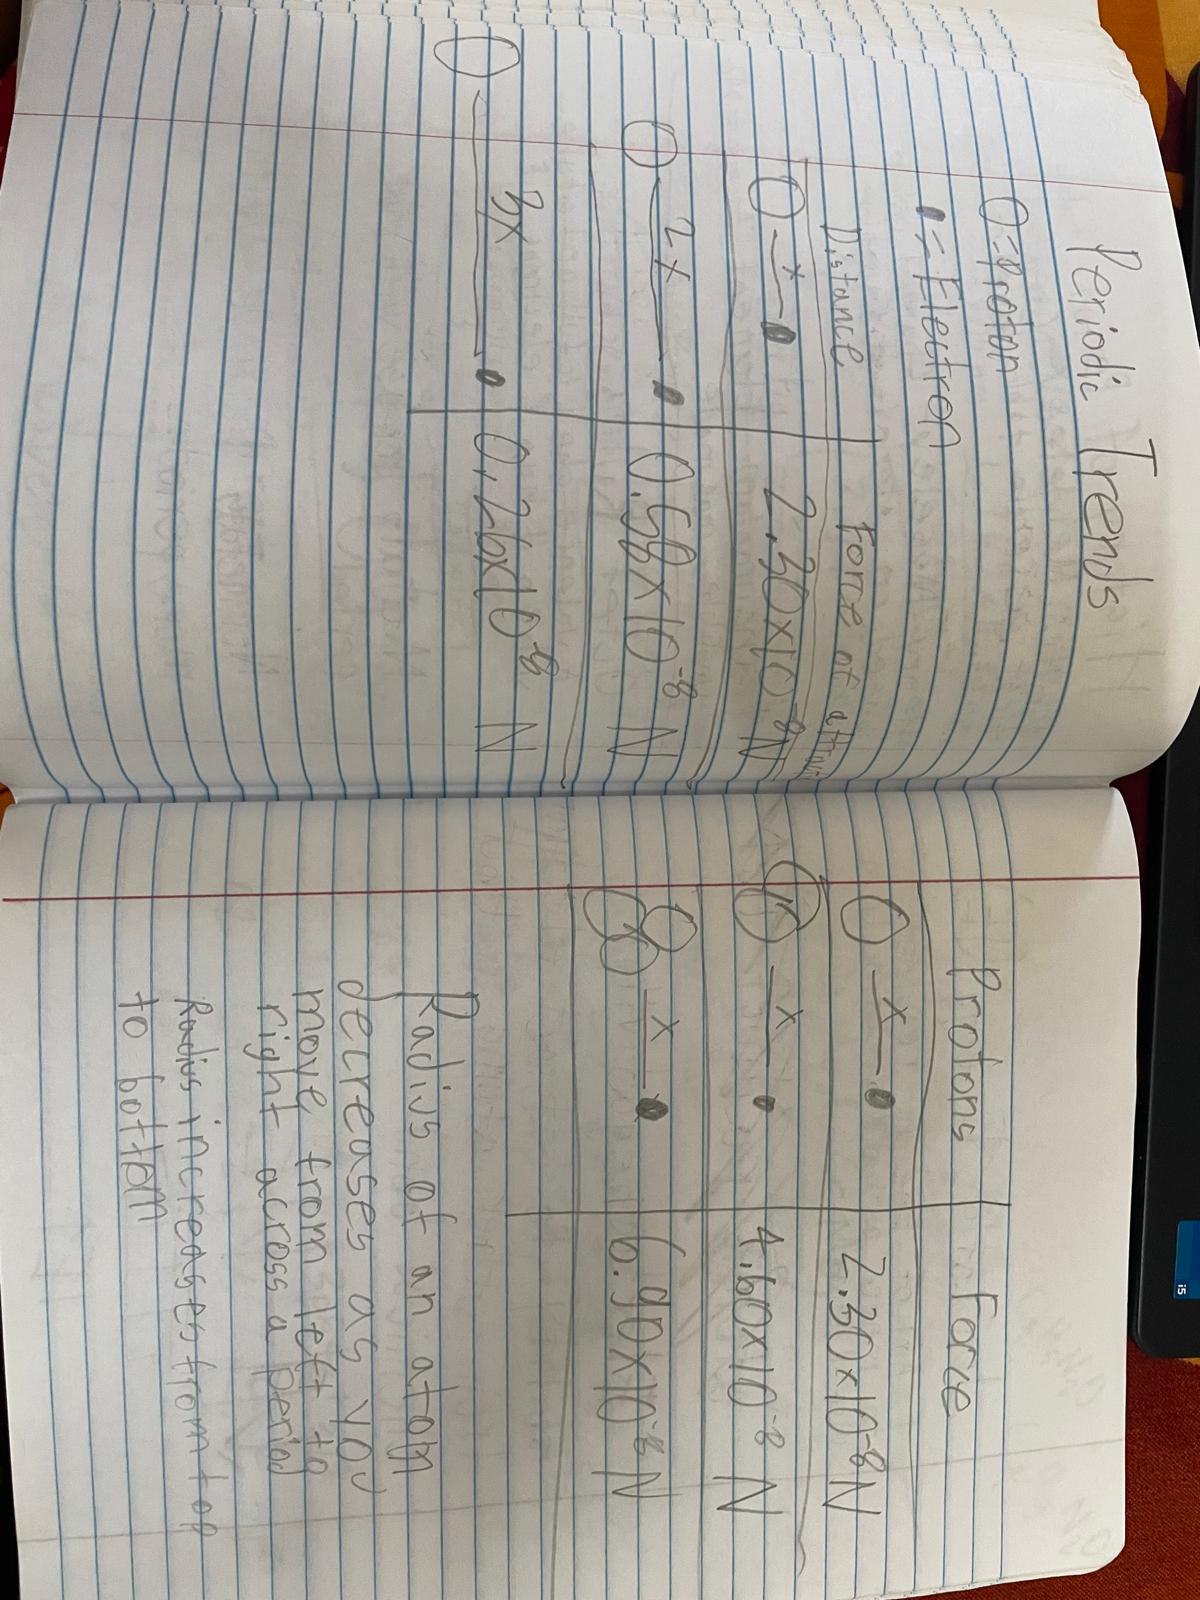 Periodic Trends
O=Proton
= Electron
Distance Force of
x 2.30x10-8N
2x 0.58x10-8 N
3x 0.26x10-8 N
Protons Force
x 2.30x10-8N
x 4.60x10-8 N
x 6.90x10-8 N
Radius of an atom
decreases as you
move from left to
right across a period
Radius increases from top
to bottom
i5